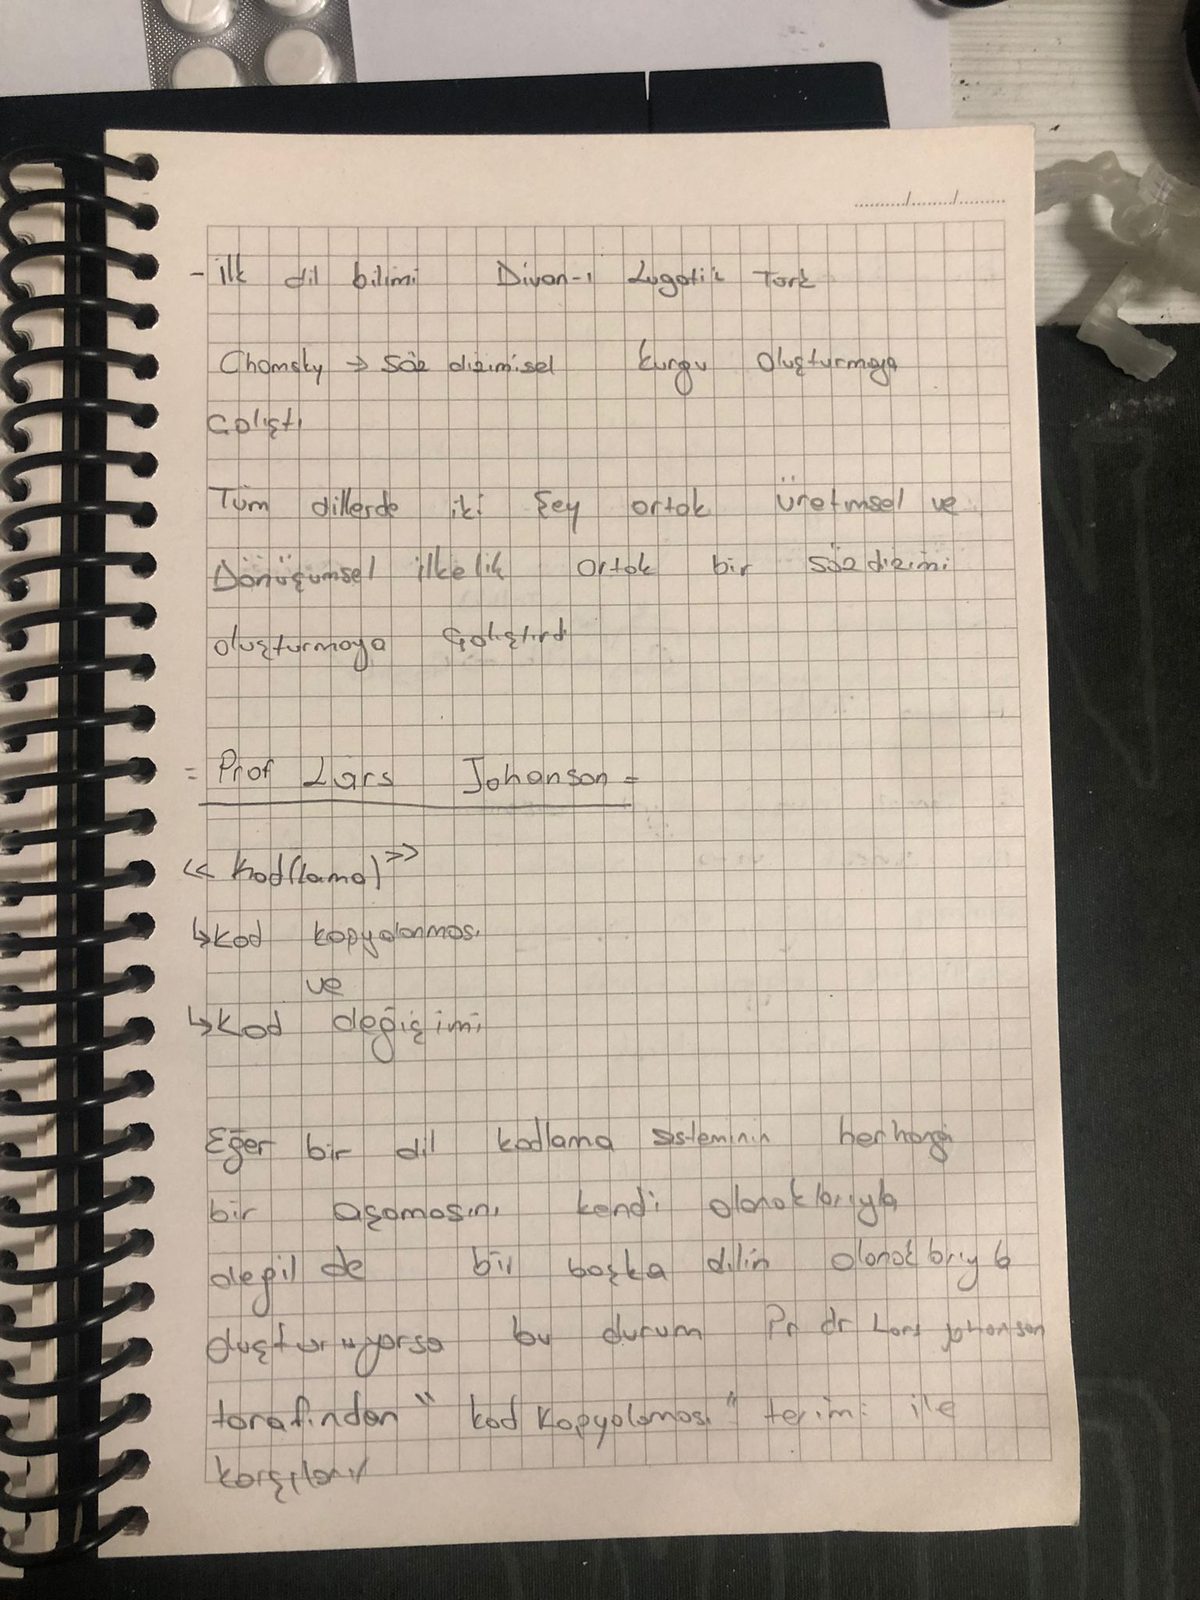 - ilk dil bilimi Divan-ı Lugatik Türk
Chomsky → Söz dizimisel kurgu oluşturmaya
çalıştı
Tüm dillerde iki şey ortak üretimsel ve
Dönüşümsel ilkelik ortak bir sözdizimi
oluşturmaya çalıştırdı
= Prof Lars Johanson =
<< Kod(lama) >>
↳ Kod kopyalanması
ve
↳ Kod değişimi
Eğer bir dil kodlama sisteminin herhangi
bir aşamasını kendi olanaklarıyla
değil de bir başka dilin olanaklarıyla
oluşturuyorsa bu durum Pr dr Lars Johanson
tarafından "kod Kopyalaması" terimi ile
karşılanır